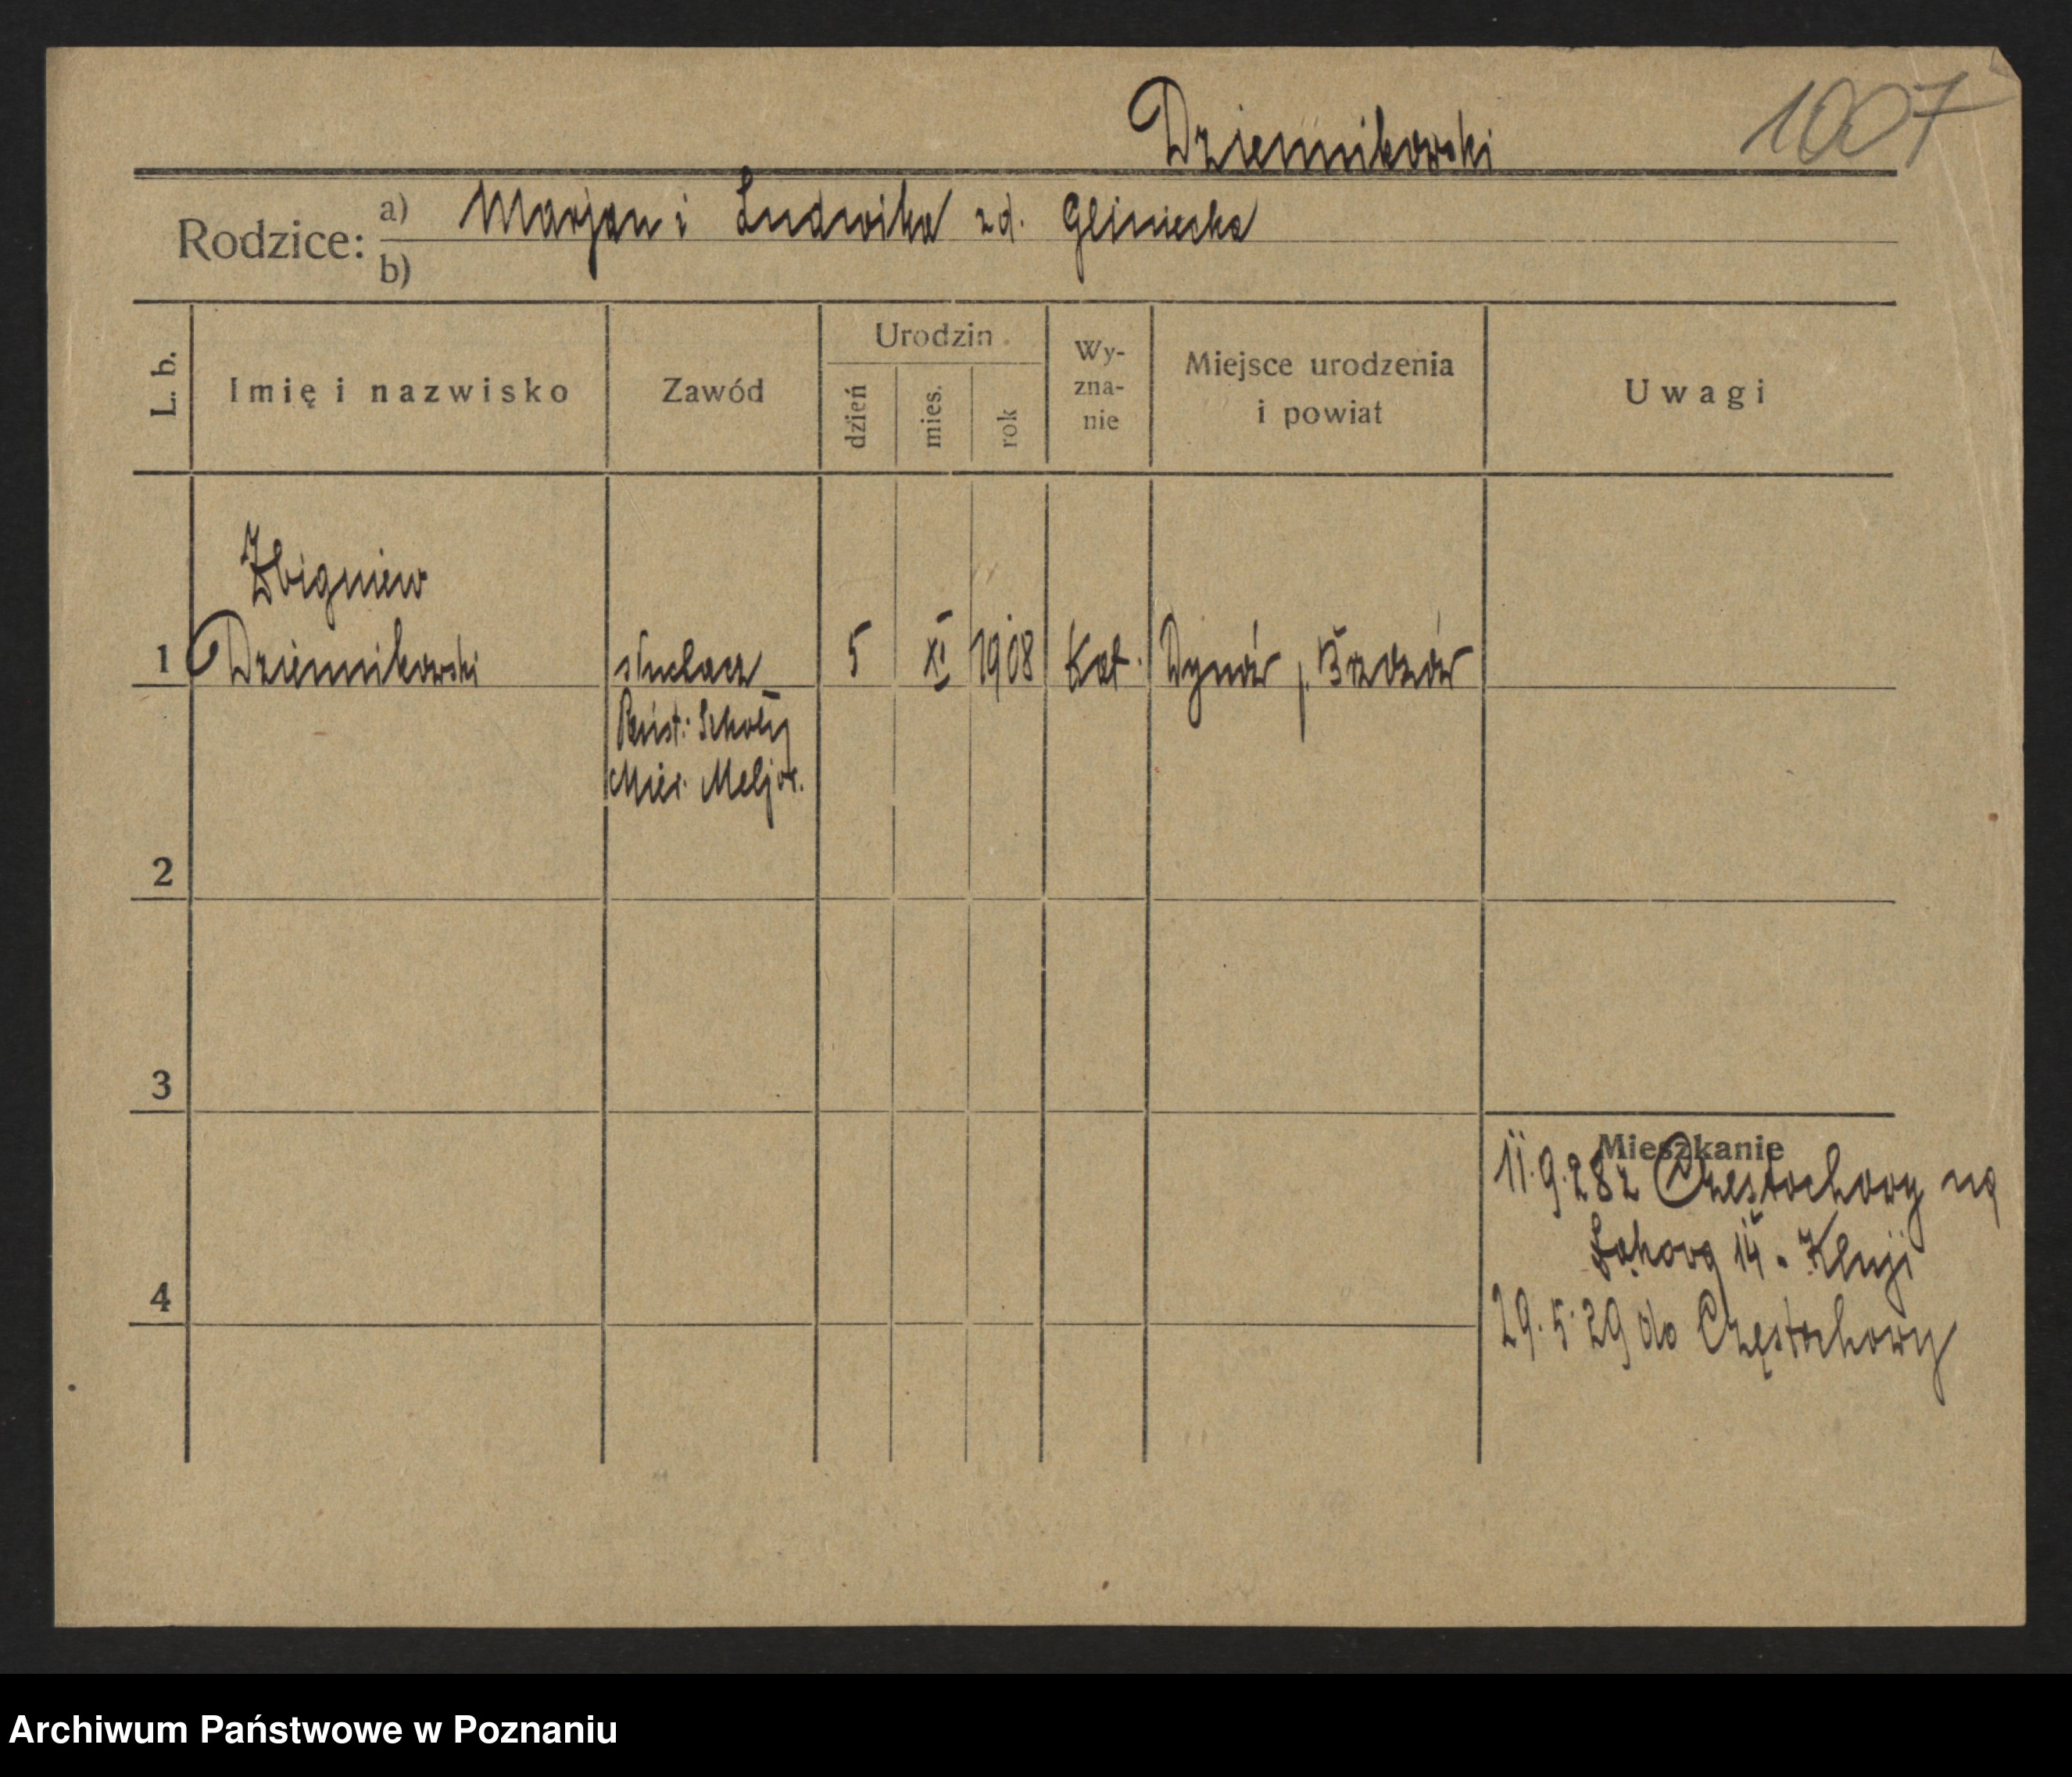 Dziennikowski 1007
Rodzice: a) Marjan i Ludwika zd. Gliniecka
b)
L. b. Imię i nazwisko Zawód Urodzin dzień mies. rok Wy-zna-nie Miejsce urodzenia i powiat Uwagi
Zbigniew
1 Dziennikowski słuchacz 5 XI 1908 Kat. Dynów p. Brzozów
Państ. Szkoły
Mier. Meljor.
2
3
Mieszkanie
11.9.28 z Częstochowy na
Łąkową 14
4
29.5.29 do Częstochowy
Archiwum Państwowe w Poznaniu